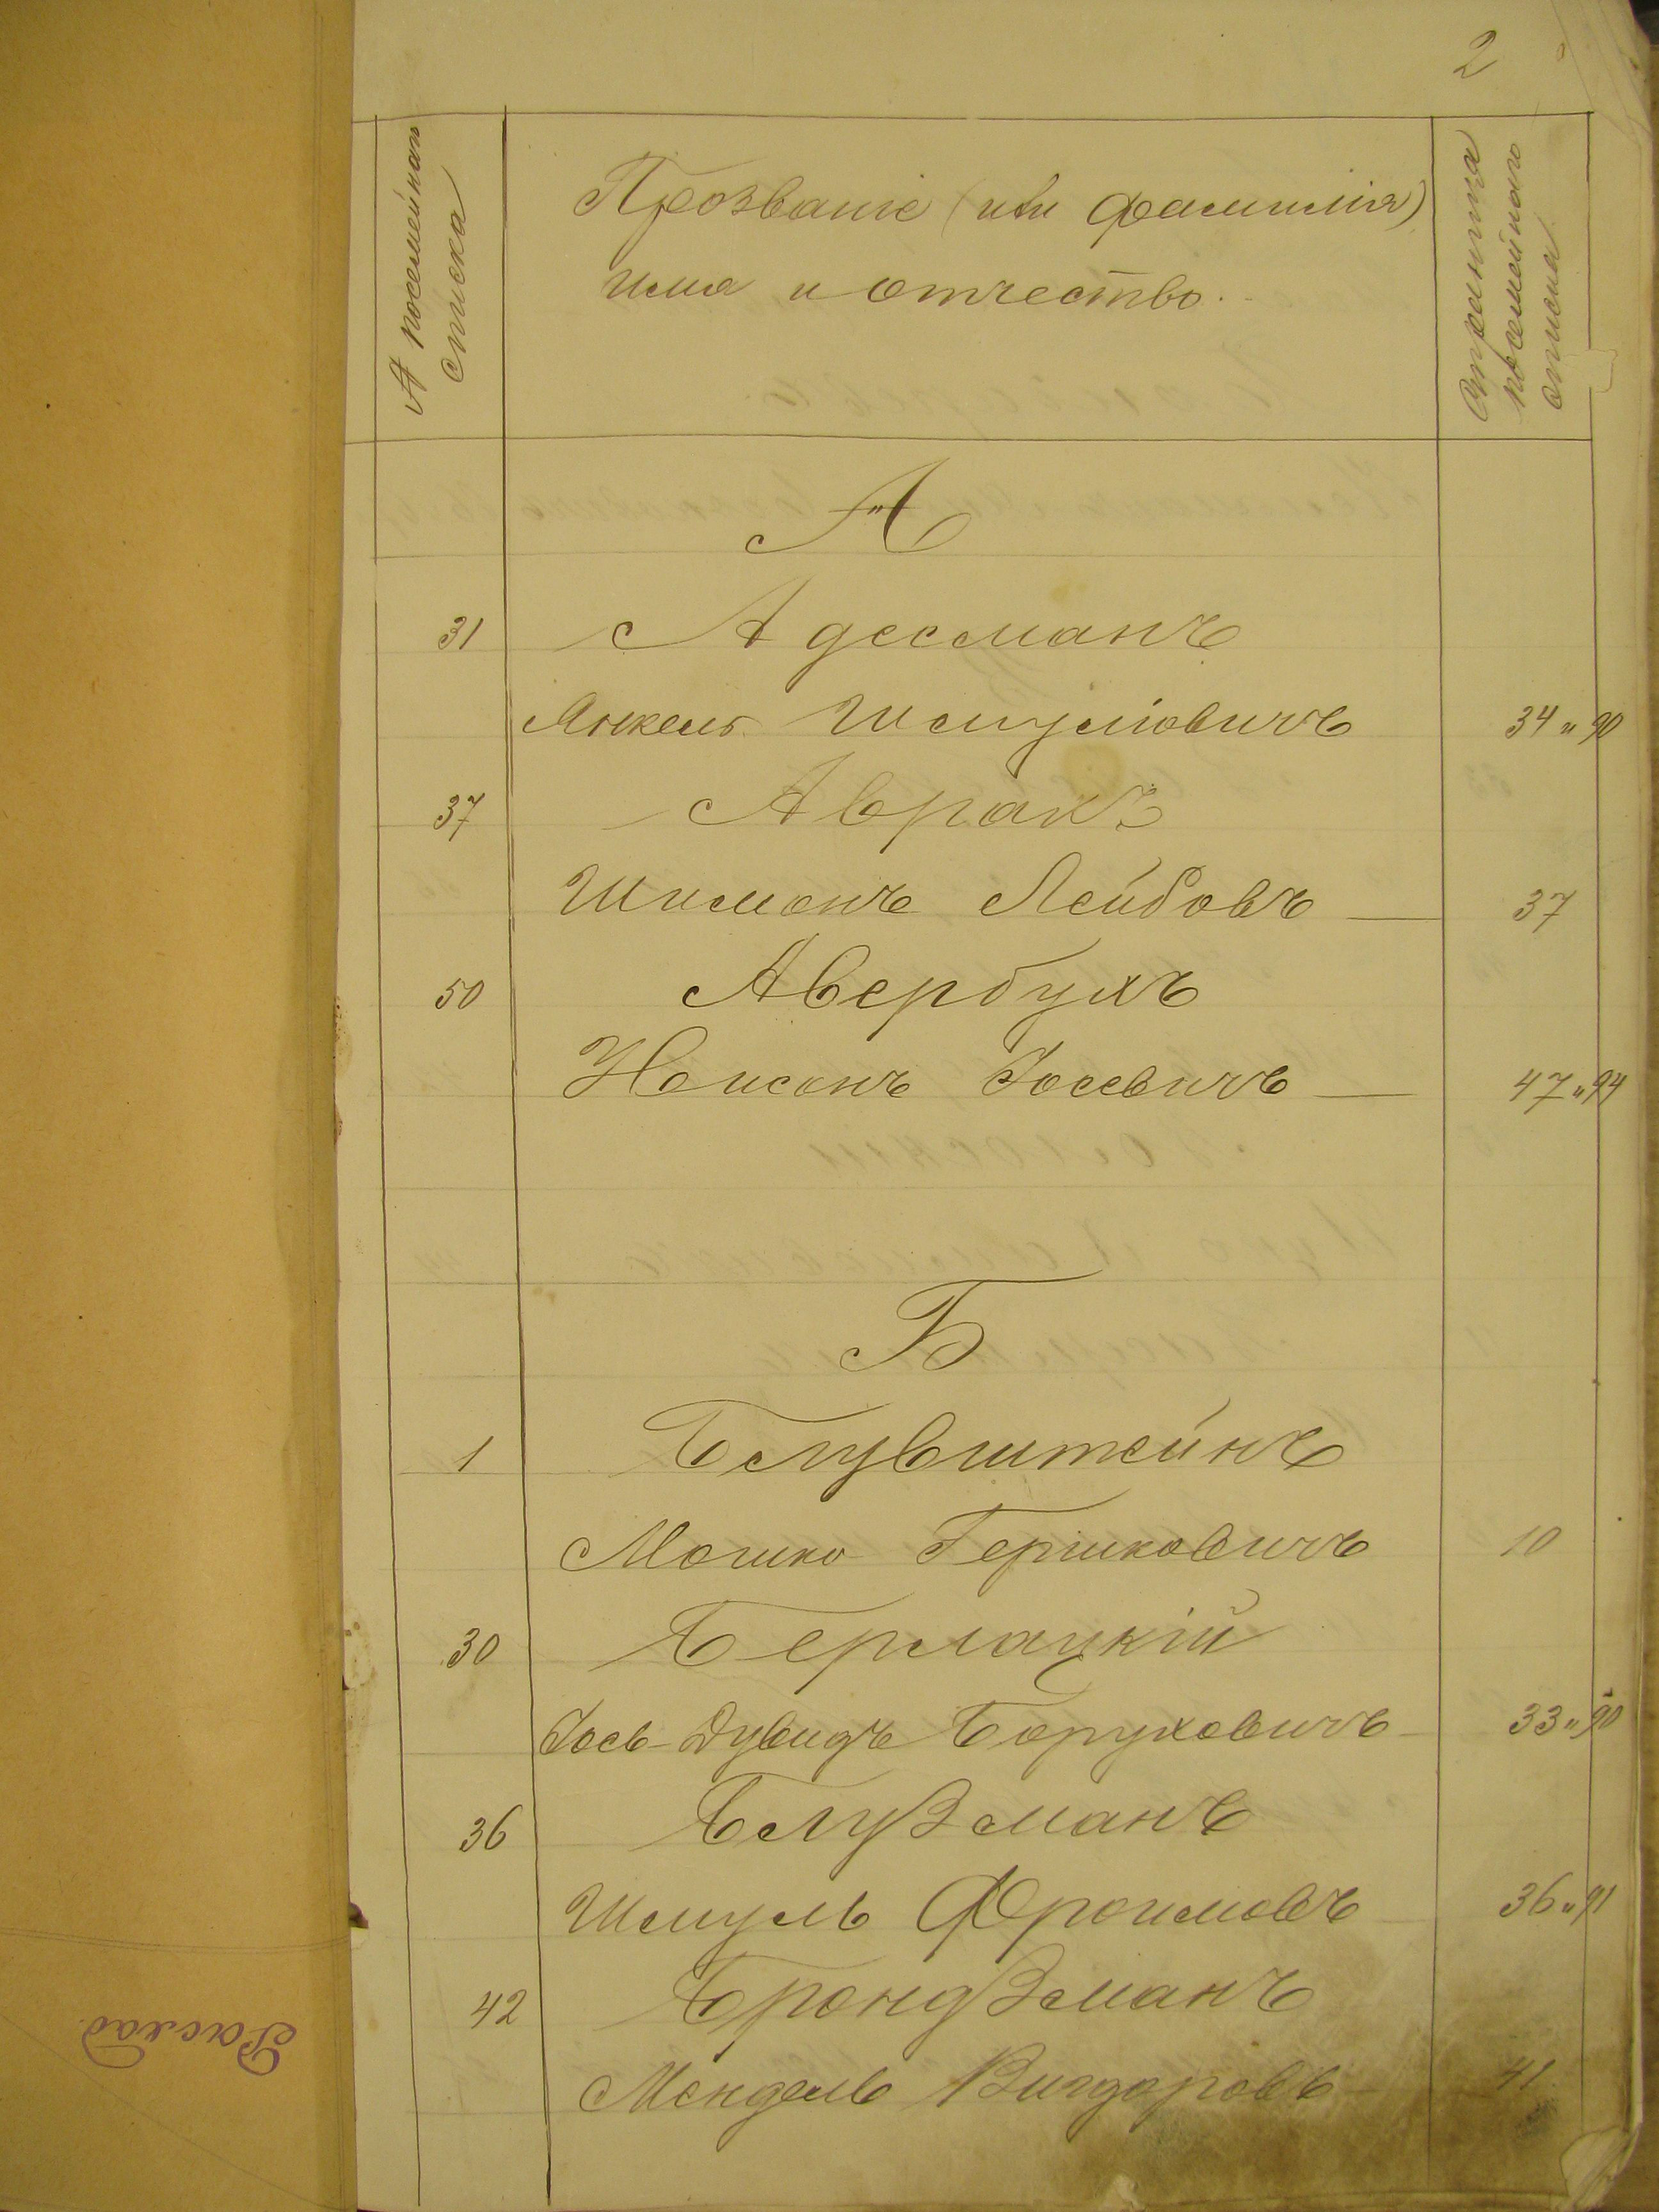 2
№ посемейнаго списка
Прозваніе (или фамилія)
имя и отчество.
Страница посемейнаго списка
А
31 Адесманъ
Янкель Шмулiовичъ 34 „ 90
37 Авракъ
Шимонъ Лейбовъ — 37
50 Авербухъ
Нисонъ Іосевичъ — 47 „ 94
Б
1 Блувштейнъ
Мошко Гершковичъ 10
30 Берлацкій
Іось-Дувидъ Боруховичъ 33 „ 90
36 Блузманъ
Шмуль Фроимовъ 36 „ 91
42 Брондзманъ
Мендель Вигдоровъ 41